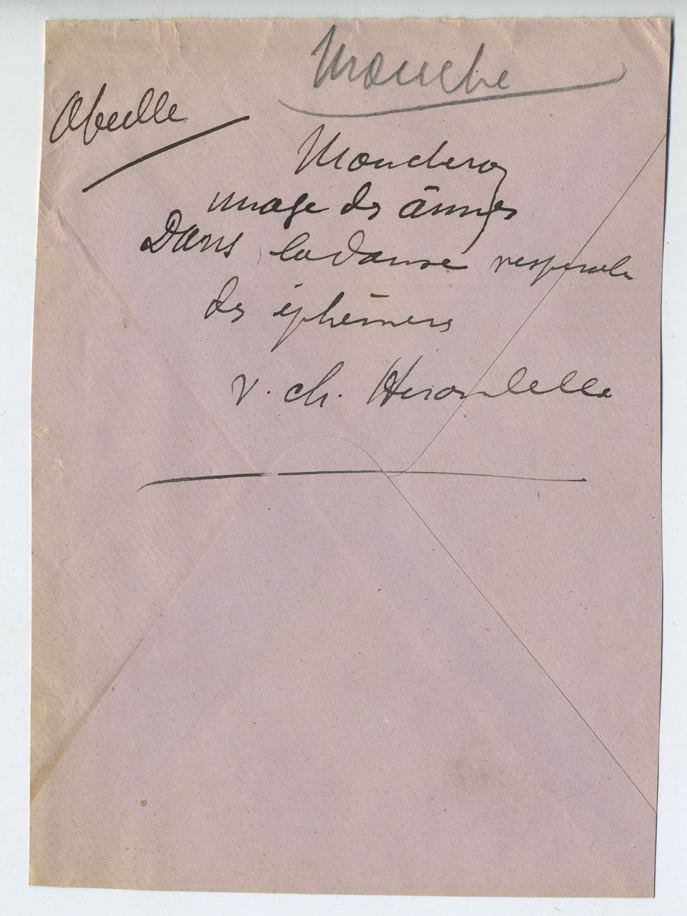 Mouche
Abeille
Moucheron
image des âmes
Dans la danse vespérale
des éphémères
v. ch. Hirondelle